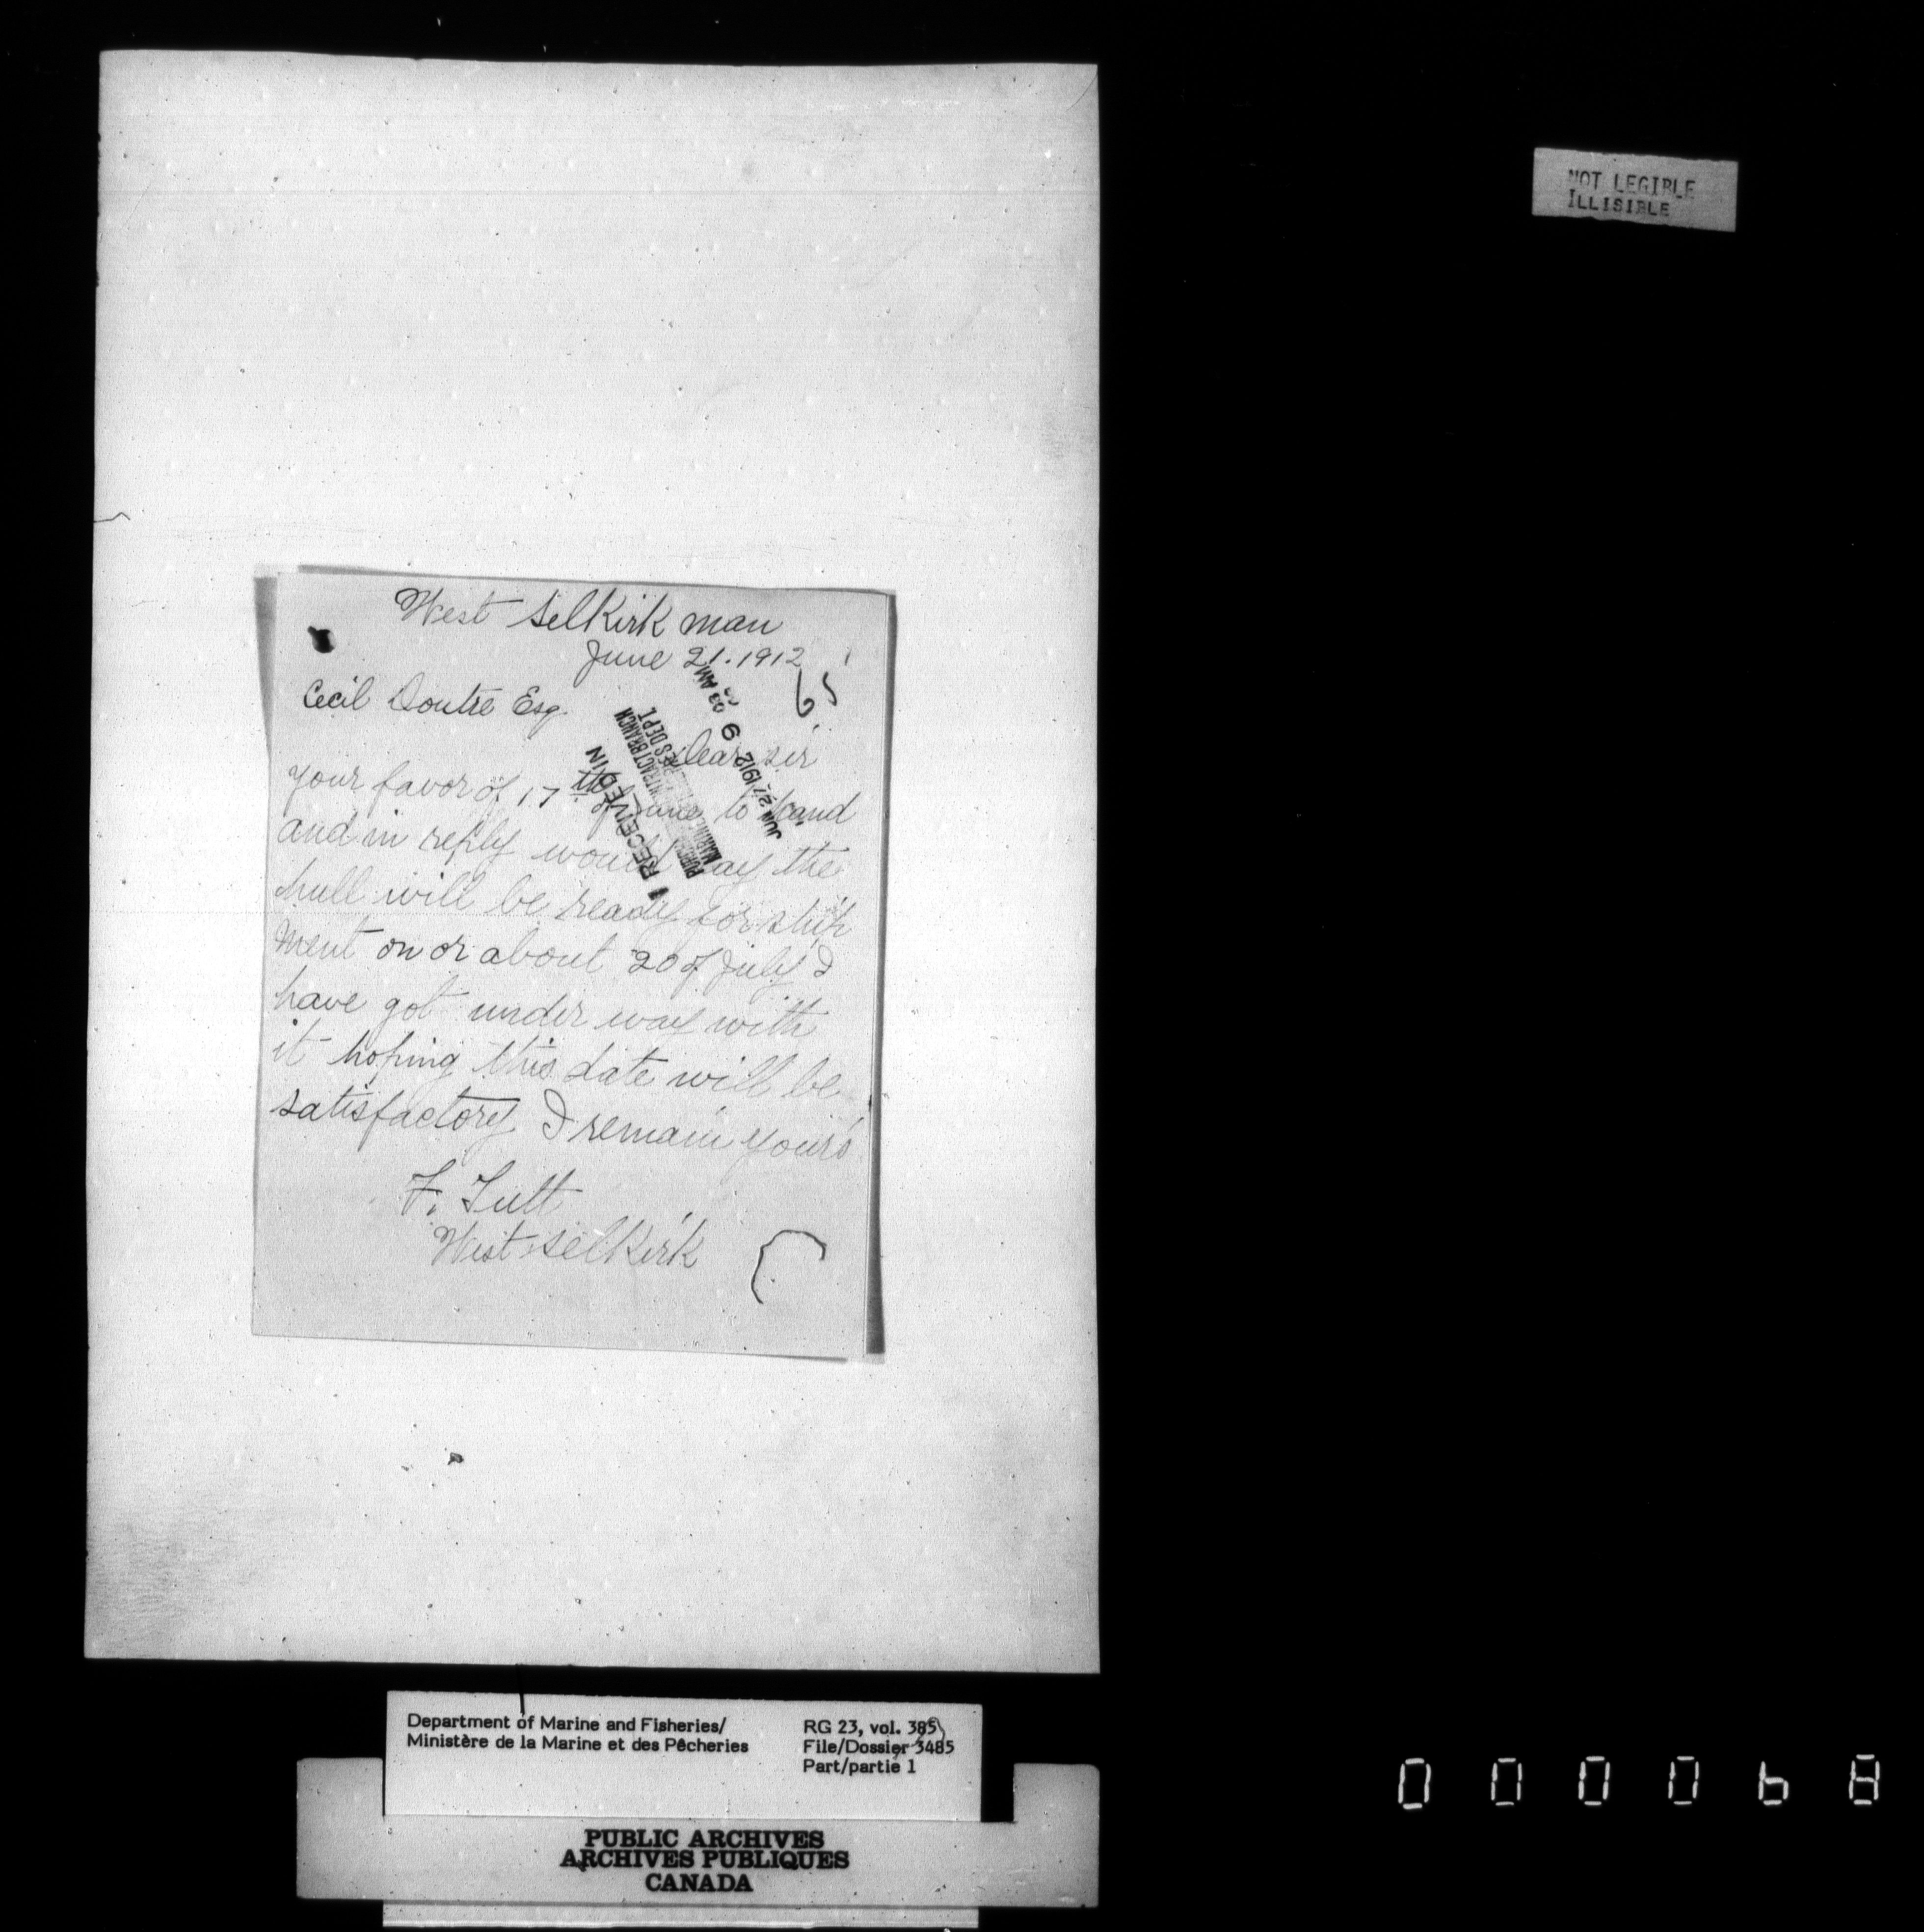 NOT LEGIBLE
ILLISIBLE
West Selkirk man
June 21. 1912
65
Cecil Doutre Esq.
Dear sir
your favor of 17th of June to hand
and in reply would say the
hull will be ready for ship
ment on or about 20 of July I
have got under way with
it hoping this date will be
satisfactory I remain yours
F. Tutt
West Selkirk
RECEIVED IN
CONTRACT BRANCH
MARINE
DEPT.
JUN 27 1912 9 03 AM
Department of Marine and Fisheries/
Ministère de la Marine et des Pêcheries
RG 23, vol. 385
File/Dossier 3485
Part/partie 1
PUBLIC ARCHIVES
ARCHIVES PUBLIQUES
CANADA
000068